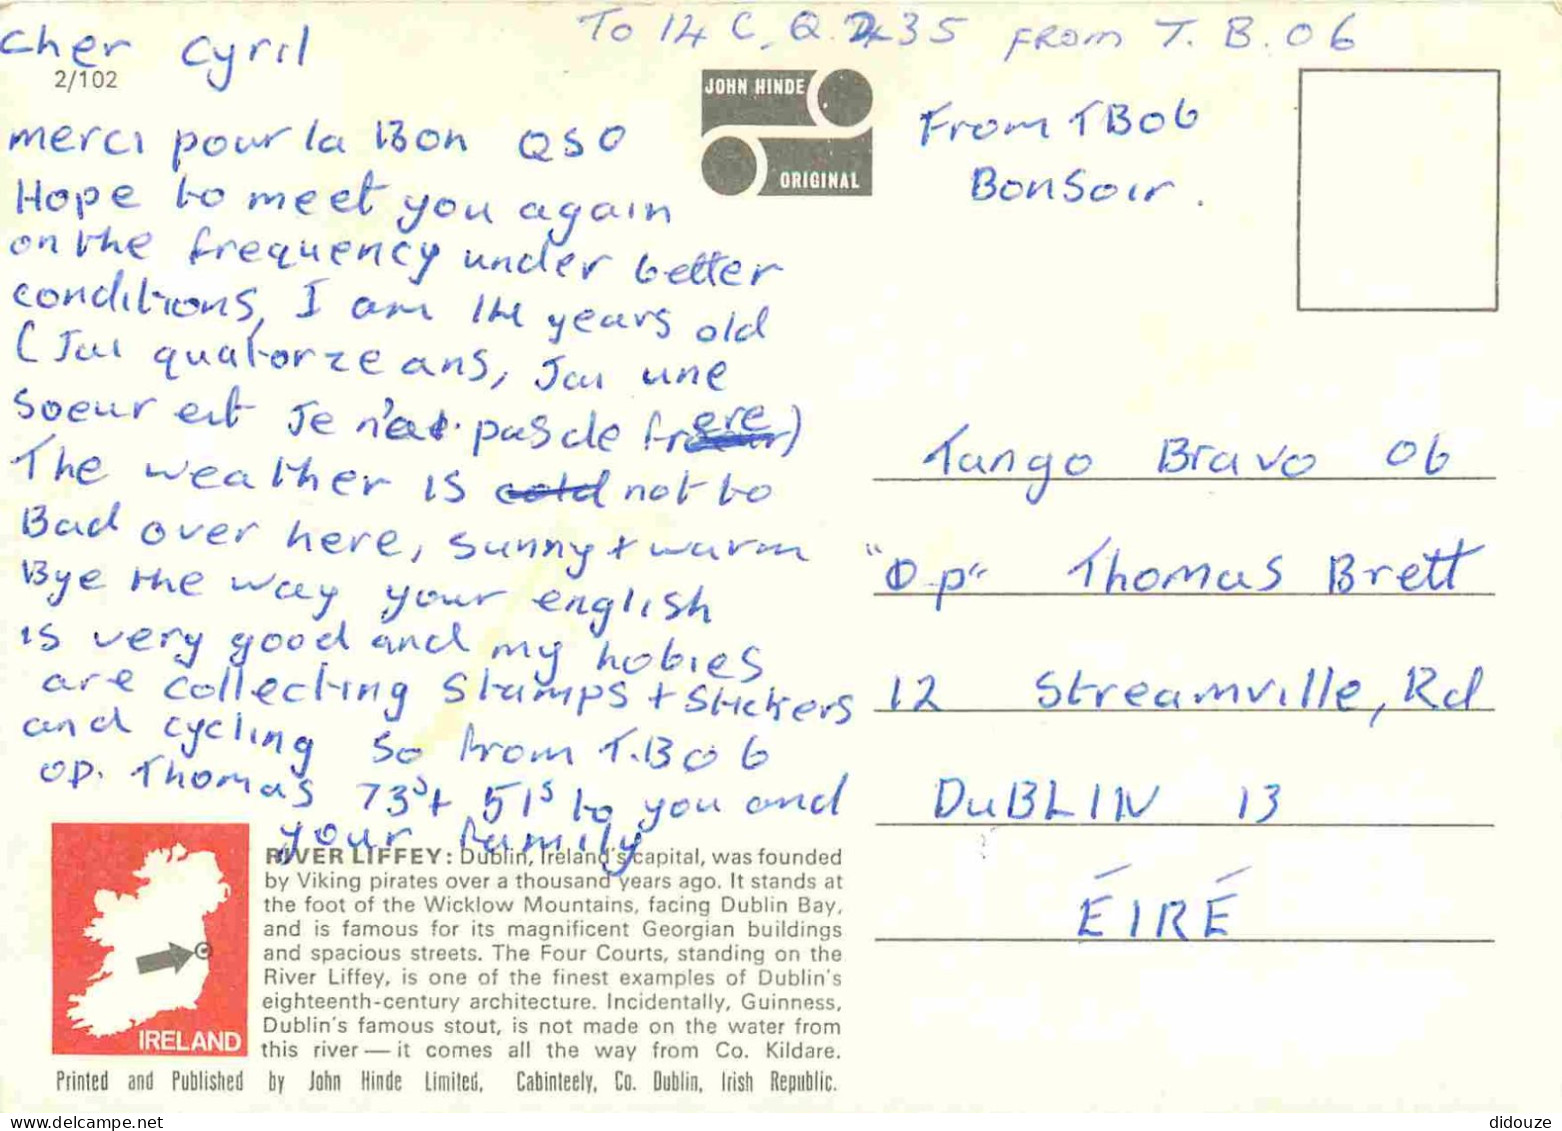 To 14 C, Q. 2435 From T. B. 06
Cher Cyril
2/102
merci pour la Bon QSO
Hope to meet you again
on the frequency under better
conditions, I am 14 years old
(Jai quatorze ans, Jai une
soeur est Je n'ai pas de frere)
The weather is cold not to
Bad over here, sunny + warm
Bye the way your english
is very good and my hobies
are collecting Stamps + Stickers
and cycling so from T.B 0 6
op. Thomas 73s + 51s to you and
your family
JOHN HINDE
ORIGINAL
From TB06
BonSoir.
Tango Bravo 06
"Op" Thomas Brett
12 Streamville, Rd
DuBLIN 13
ÉIRÉ
IRELAND
RIVER LIFFEY: Dublin, Ireland's capital, was founded
by Viking pirates over a thousand years ago. It stands at
the foot of the Wicklow Mountains, facing Dublin Bay,
and is famous for its magnificent Georgian buildings
and spacious streets. The Four Courts, standing on the
River Liffey, is one of the finest examples of Dublin's
eighteenth-century architecture. Incidentally, Guinness,
Dublin's famous stout, is not made on the water from
this river — it comes all the way from Co. Kildare.
Printed and Published by John Hinde Limited, Cabinteely, Co. Dublin, Irish Republic.
didouze